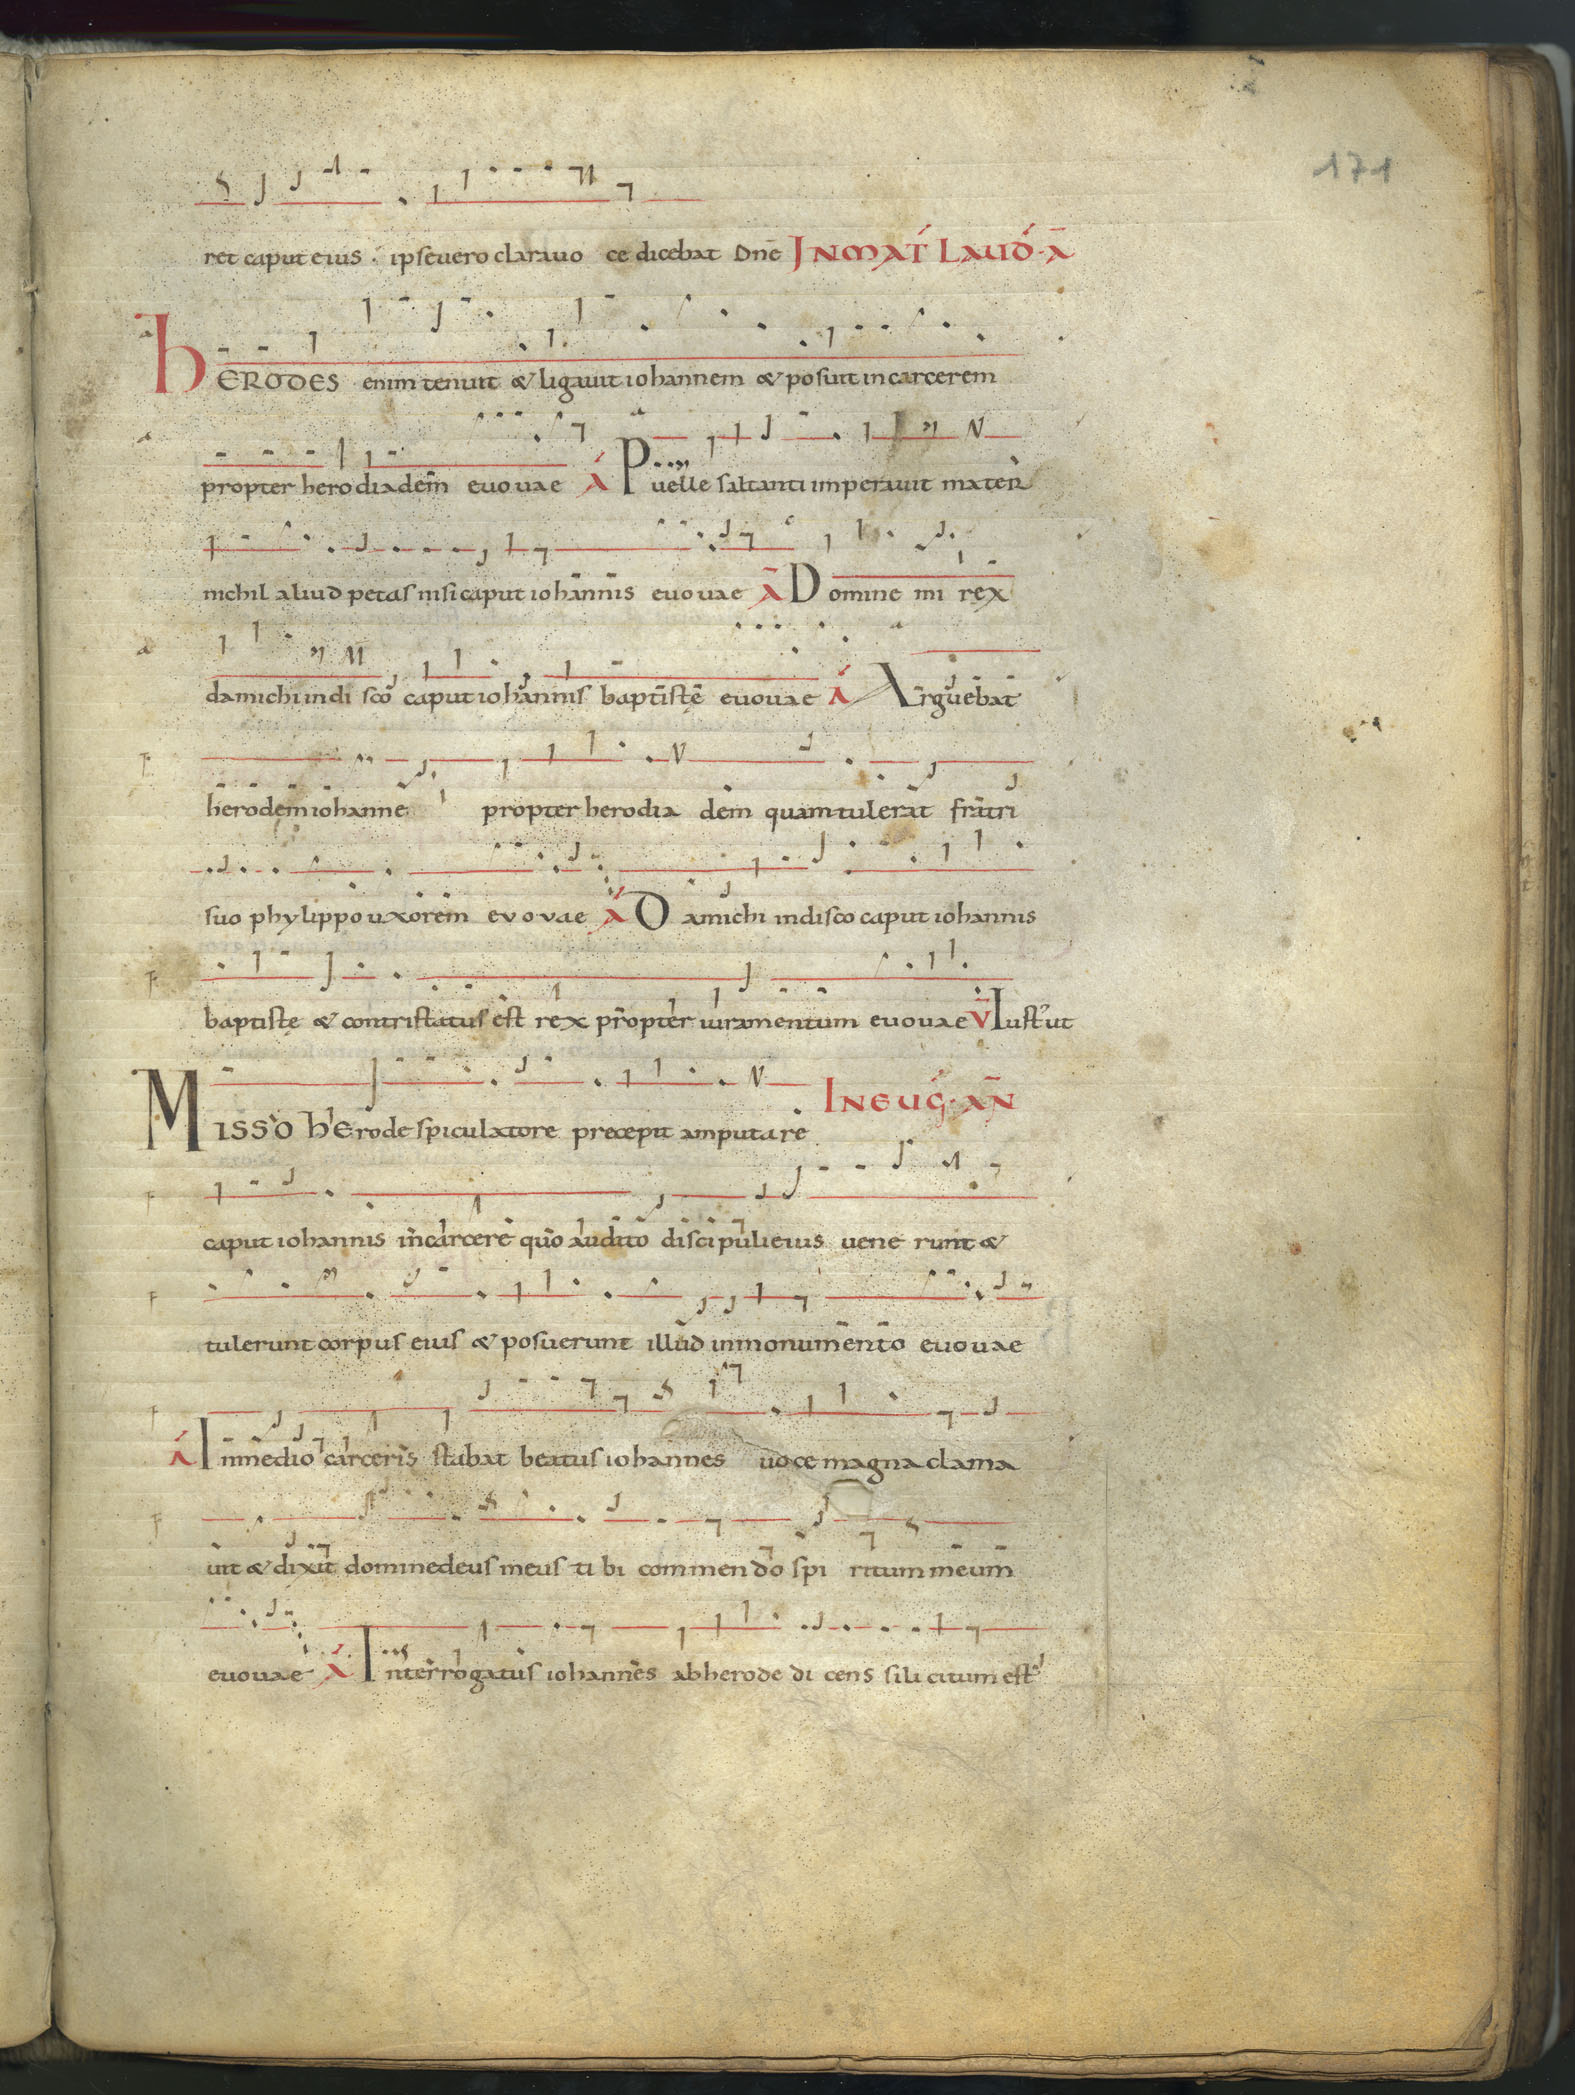 171
ret caput eius . ipse uero clara uo ce dicebat Dnē IN MAT LAUD · A
hERODES enim tenuit & ligauit iohannem & posuit in carcerem
propter herodiadem euouae A Puelle saltanti imperauit mater
nichil aliud petas nisi caput iohannis euouae A Domine mi rex
da michi in disco caput iohannis baptistę euouae A Arguebat
herodem iohanne propter herodia dem quam tulerat fratri
suo phylippo uxorem evovae A Da michi in disco caput iohannis
baptistę & contristatus est rex propter iuramentum euouae V Iust' ut
MISSO hErode spiculatore precepit amputare IN EUG · AN
caput iohannis in carcere quo audito discipuli eius uene runt &
tulerunt corpus eius & posuerunt illud in monumento euouae
A In medio carceris stabat beatus iohannes uoce magna clama
uit & dixit domine deus meus ti bi commendo spi ritum meum
euouae A Interrogatus iohannes ab herode di cens si licitum est